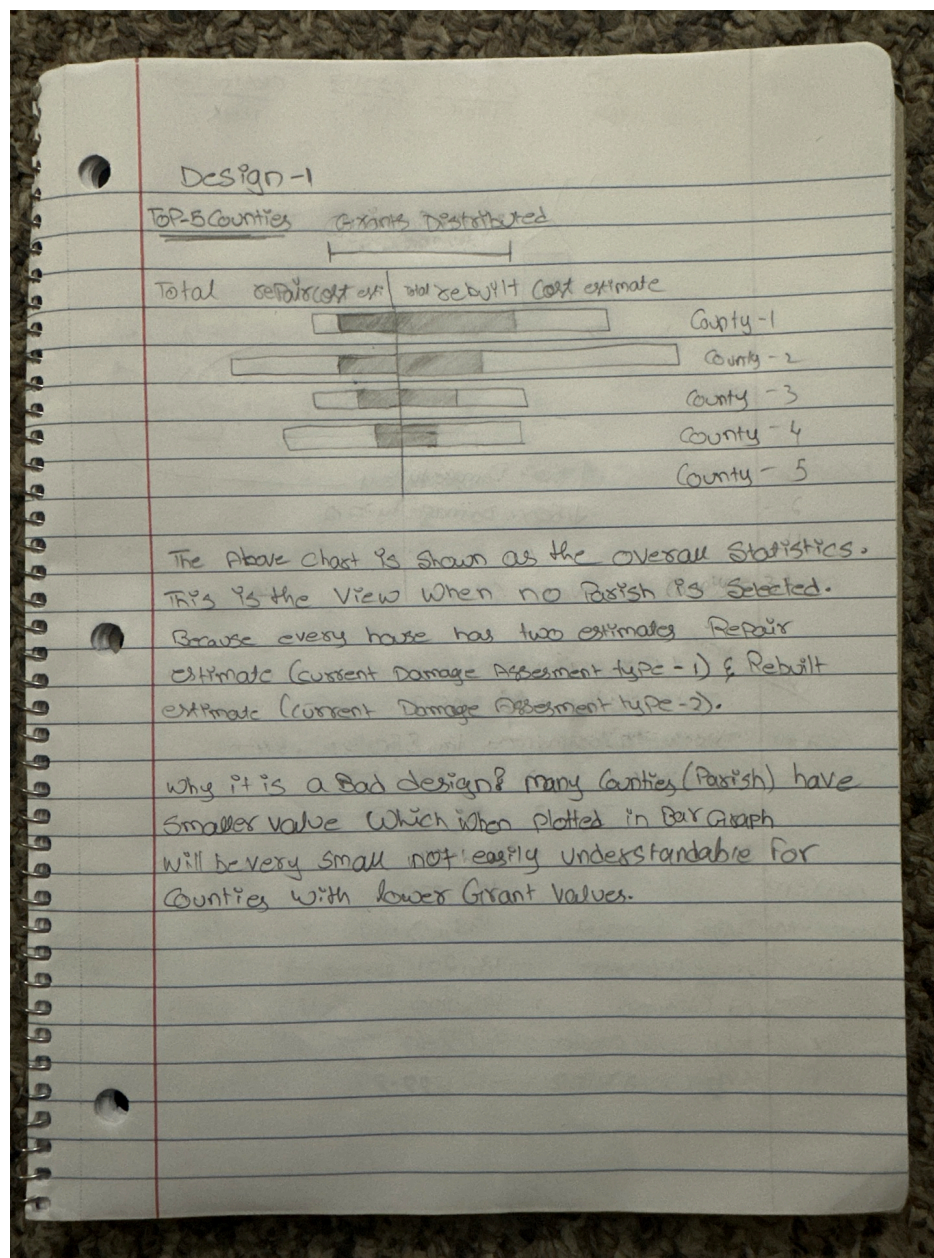 Design-1
Top-5 Counties Grants Distributed
Total repair cost esti total rebuilt Cost estimate
County-1
County-2
County-3
County-4
County-5
The Above chart is shown as the overall Statistics.
This is the View When no Parish is Selected.
Because every house has two estimates Repair
estimate (current Damage Assesment type-1) & Rebuilt
estimate (current Damage Assesment type-2).
Why it is a Bad design? many Counties (Parish) have
Smaller value Which when plotted in Bar Graph
will be very small not easily understandable for
Counties with lower Grant values.